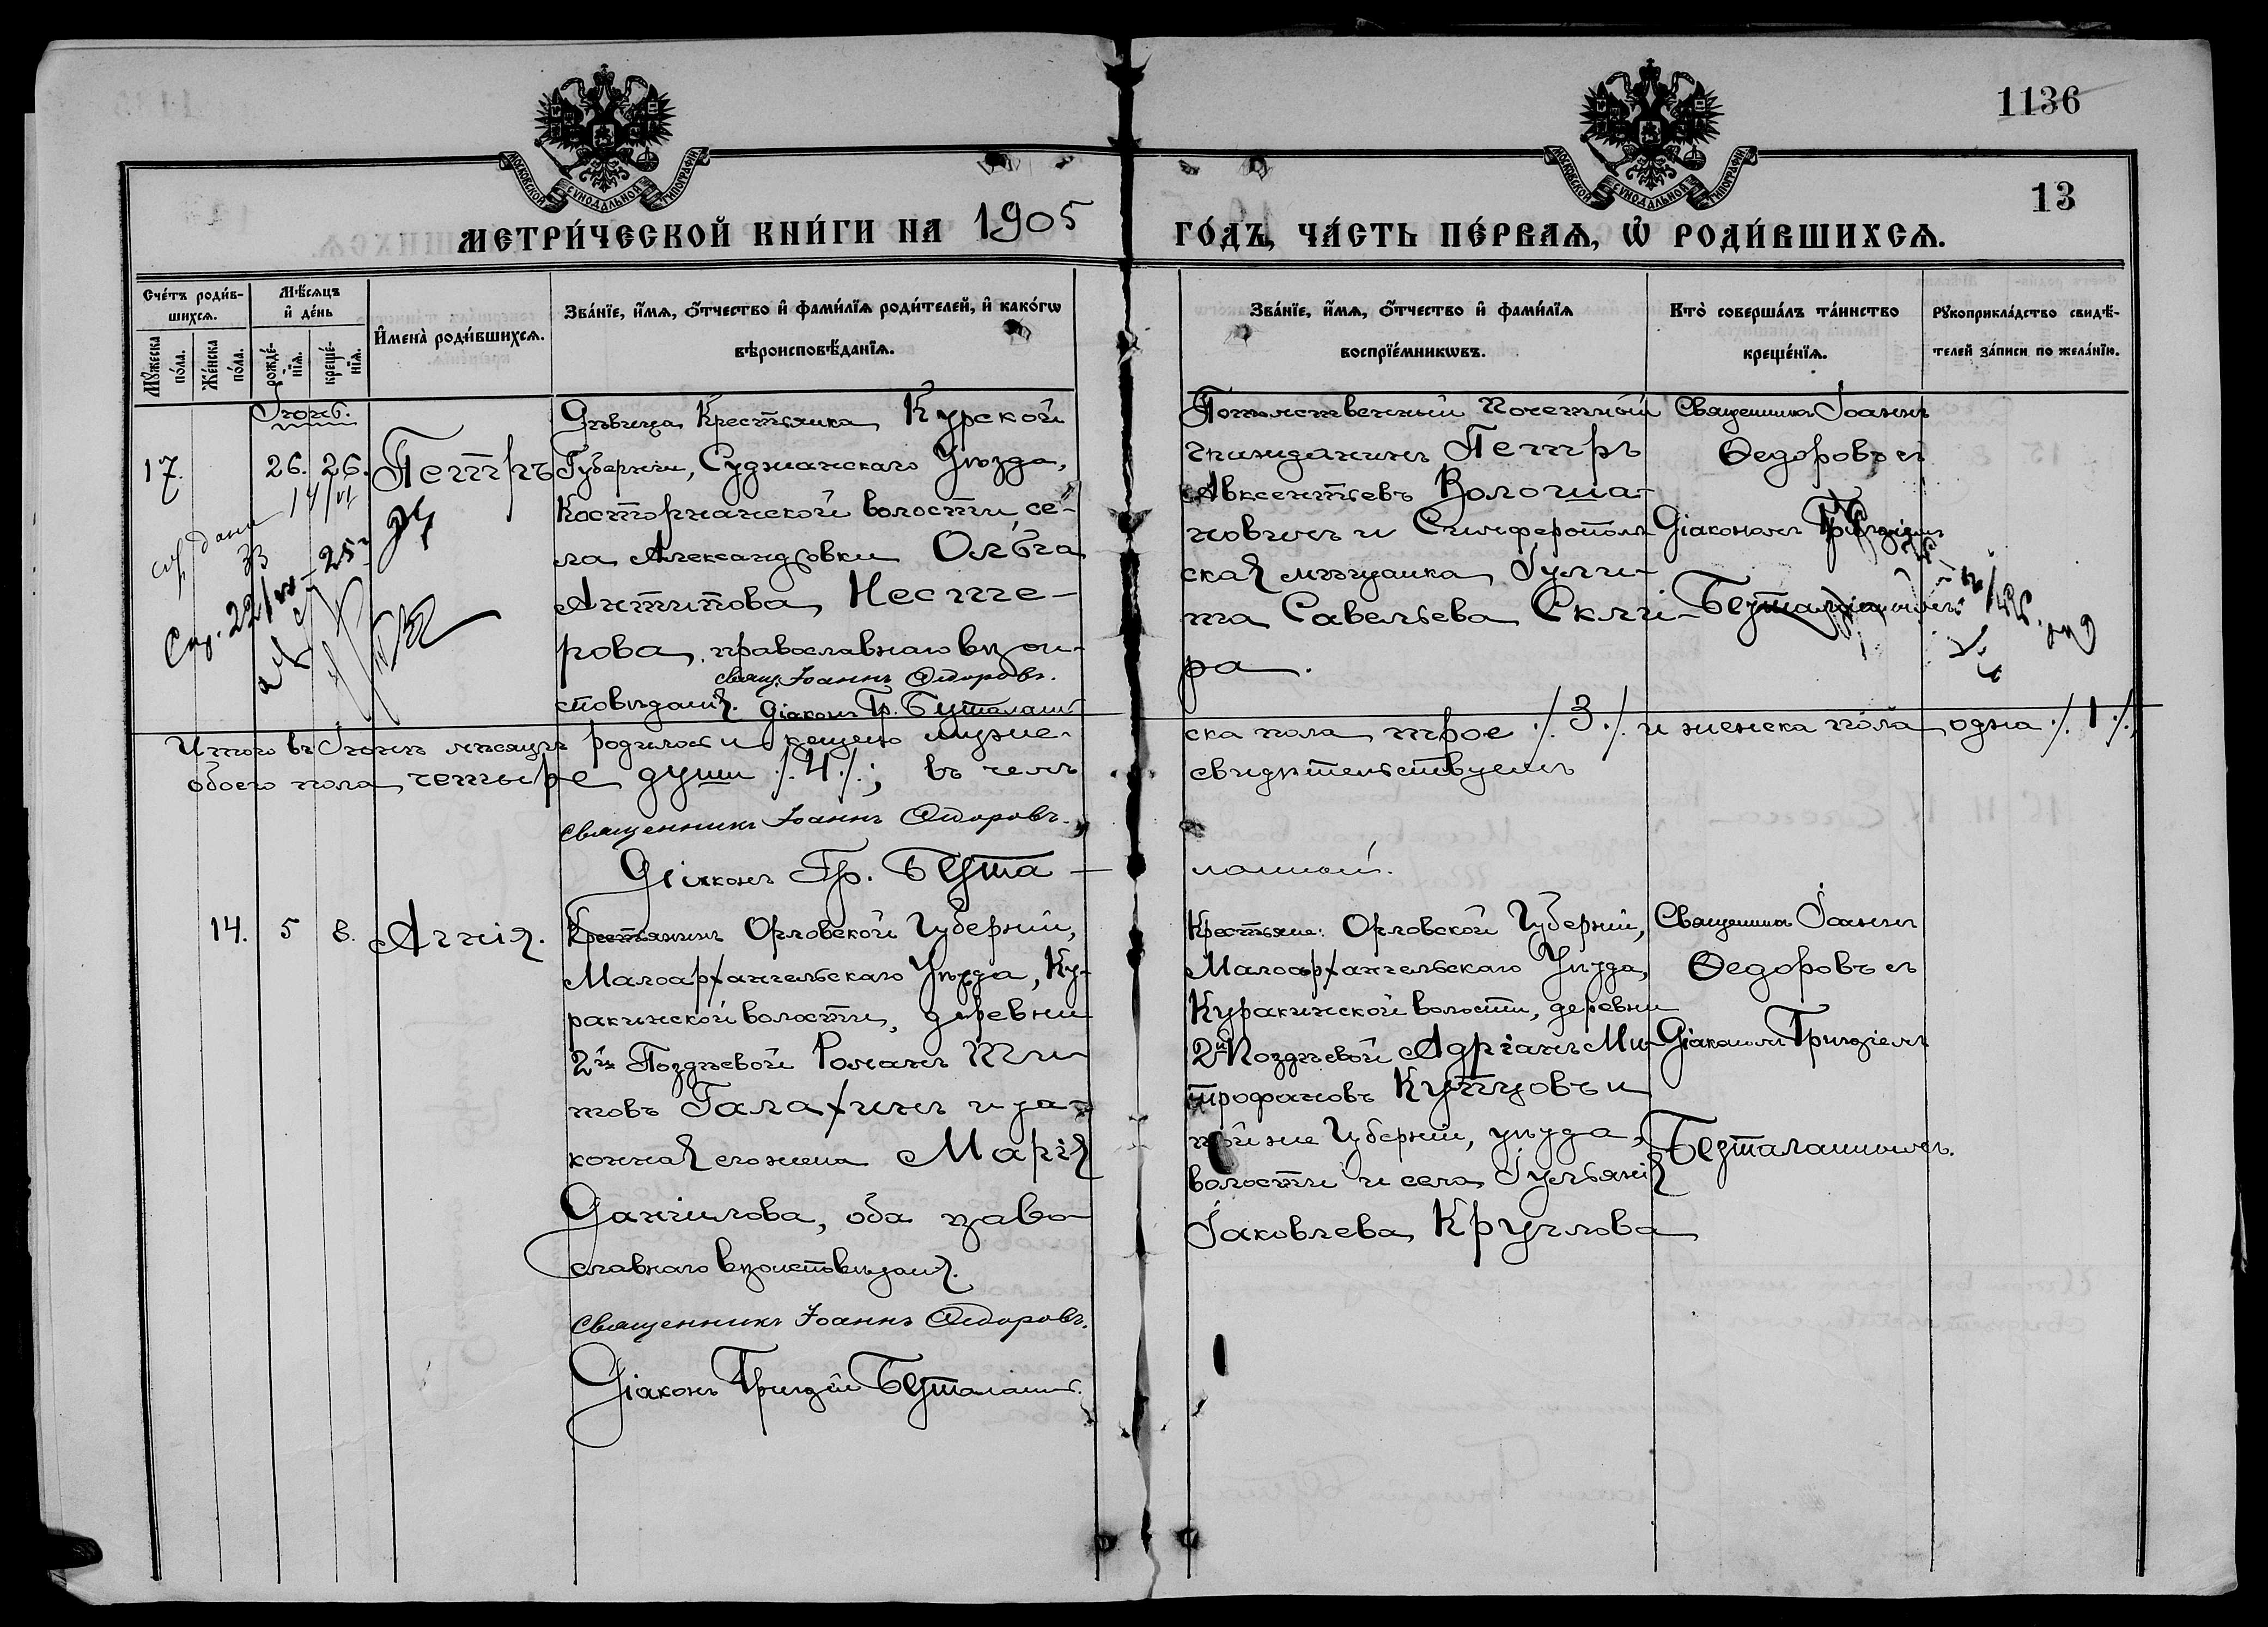 1136
13
МОСКОВСКОЙ СѴНОДАЛЬНОЙ ТИПОГРАФІИ
МОСКОВСКОЙ СѴНОДАЛЬНОЙ ТИПОГРАФІИ
МЕТРИ́ЧЕСКОЙ КНИ́ГИ НА 1905 ГО́ДЪ, ЧА́СТЬ ПЕ́РВАѦ, Ѡ҆ РОДИ́ВШИХСѦ.
Сче́тъ роди́в-
шихсѧ.
Мꙋ́жеска
по́ла.
Же́нска
по́ла.
Мѣ́сѧцъ
и҆ де́нь
рожде́-
нїѧ.
креще́-
нїѧ.
И҆мена̀ роди́вшихсѧ.
Зва́нїе, и҆́мѧ, о҆́тчество и҆ фами́лїѧ роди́телей, и҆ како́гѡ
вѣроисповѣ́данїѧ.
Зва́нїе, и҆́мѧ, о҆́тчество и҆ фами́лїѧ
воспрїе́мникѡвъ.
Кто̀ соверша́лъ та́инство
креще́нїѧ.
Рꙋкоприкла́дство свидѣ́-
телей за́писи по жела́нїю.
Іюнь.
17.
26. 26.
Петръ
Дѣвица Крестьянка Курской
Губерніи, Суджанскаго Уѣзда,
Косторнанской волости, се-
ла Александровки Ольга
Антипова Несте-
рова, православнаго вѣрои-
сповѣданія.
Свящ. Іоаннъ Ѳедоровъ.
Діаконъ Гр. Бушталаш
Потомственный Почетный
гражданинъ Петръ
Авксентьевъ Волоша-
новичъ и Симферополь
ская мѣщанка Іули-
та Савельева Скля-
ра.
Священникъ Іоаннъ
Ѳедоровъ съ
Діакономъ Григоріемъ
14/VI
33
25
Итого въ Іюнѣ мѣсяцѣ родилось и крещено муже-
ска пола трое ./.3./. и женска пола одна ./.1./.,
обоего пола четыре души ./.4./.; въ чемъ
свидѣтельствуемъ
священникъ Іоаннъ Ѳедоровъ.
Діаконъ Гр.
14. 5 8. Агнія.
Крестьянинъ Орловской Губерніи,
Малоархангельскаго Уѣзда, Ку-
ракинской волости, деревни
2й Поздѣевой Романъ Ти-
товъ Галахинъ и за-
конная его жена Марія
Данилова, оба право-
славнаго вѣроисповѣданія.
священникъ Іоаннъ Ѳедоровъ.
Діаконъ Григорій
Крестьяне: Орловской Губерніи,
Малоархангельскаго Уѣзда,
Куракинской волости, деревни
2й Поздѣевой Адріанъ Ми-
трофановъ Купцовъ и
той же Губерніи, уѣзда,
волости и села Іульянія
Іаковлева Круглова
Священникъ Іоаннъ
Ѳедоровъ съ
Діакономъ Григоріемъ